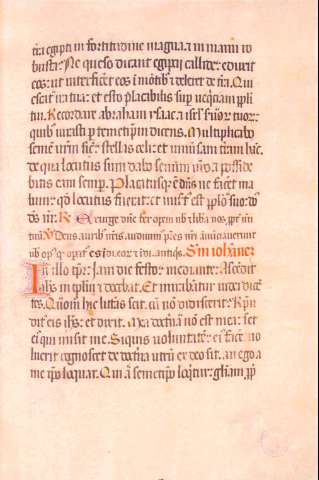 tra egipti in fortitudine magna. a in manu ro
busta: Ne queso dicant egiptii callide: eduxit
eos: ut interficeret eos i motib; et deleret de tra. Qui
escat ira tua: et esto placabilis sup nequitiam ppli
tui. Recordare abraham ysaac a isrl suor tuor:
quib; iurasti p temetipm dicens. Multiplicabo
semen urm sic stellas celi: et uniusam tram hac.
de qua locutus sum dabo semini uro: a posside
bitis eam semp. Placatusq; e dns ne faceret ma
lum: qd locutus fuerat: et misert est pplo suo. dns
ds nr: R Exurge dne fer opem nob et libera nos. ppt nm
tuum V Deus aurib nris. audiuim pres nri annuntiauerunt
nob opus
Sm iohanem
In illo tpr: Iam die festo: mediante: Ascendit
ihs in templum et docebat. Et mirabantur iudei dicen
tes. Quom hic litteras scit. cu non didicerit. Rn
dit eis ihs: et dixit. Mea doctrina non est mea: set
ei qui misit me. Siquis voluntate ei facere uo
luerit cognoscet de doctrina utru ex deo sit. an ego a
me ipo loquar. Qui a semetipo loquitur: gliam pp